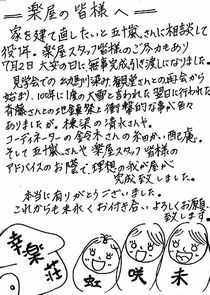 ＝楽屋の皆様へ＝
家を建て直したいと五十嵐さんに相談して
役1年。楽屋スタッフ皆様のご尽力もあり
7月2日 大安の日に無事完成引き渡しになりました。
見学会での幼馴染み 観堂さんとの再会から
始まり、100年に1度の大雪と言われた翌日に行われた
斉藤さんとの地鎮祭と衝撃的な事が多々
ありましたが、棟梁の清水さんや、
コーディネーターの鈴木さんの細かい配慮。
そして五十嵐さんや 楽屋スタッフ皆様の
アドバイスのお陰で、理想の我が家が
完成致しました。
本当に有りがとうございました。
これからも末永くお付き合いよろしくお願い
致します。
幸楽荘
虹
咲
未